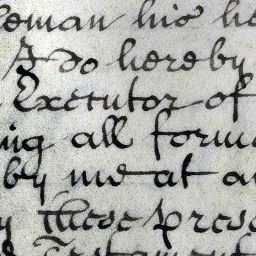 leman his he
I do hereby
Executor of
ing all form
by me at a
These prese
Testament